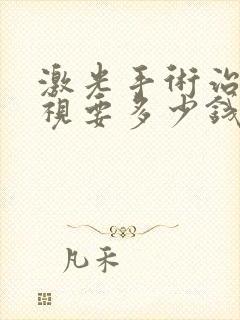 激光手術治
視要多少錢
凡禾